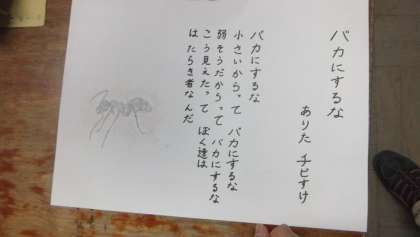 バカにするな
ありた チビすけ
バカにするな
小さいからって バカにするな
弱そうだからって バカにするな
こう見えたって ぼく達は
はたらき者なんだ